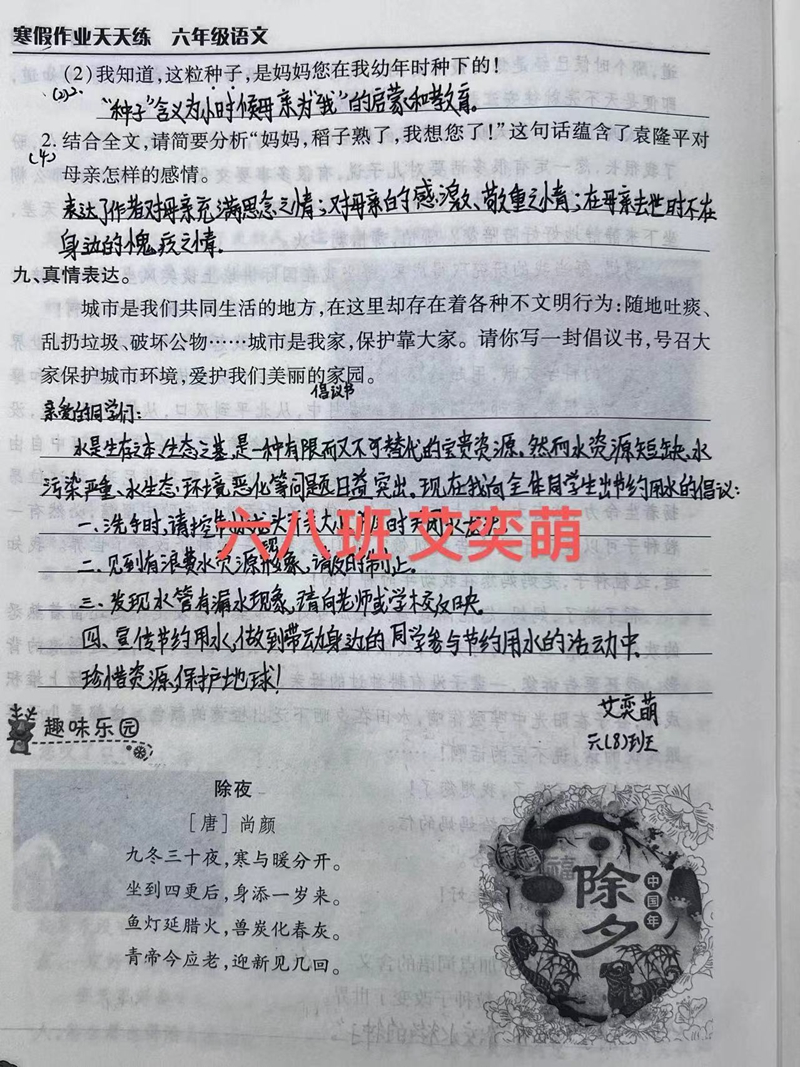 寒假作业天天练 六年级语文
(2)我知道,这粒种子,是妈妈您在我幼年时种下的!
(2)2.
“种子”含义为小时候母亲为“我”的启蒙和教育。
2.结合全文,请简要分析“妈妈,稻子熟了,我想您了!”这句话蕴含了袁隆平对
(4)
母亲怎样的感情。
表达了作者对母亲充满思念之情;对母亲的感激、敬重之情;在母亲去世时不在
身边的愧疚之情.
九、真情表达。
城市是我们共同生活的地方,在这里却存在着各种不文明行为:随地吐痰、
乱扔垃圾、破坏公物……城市是我家,保护靠大家。请你写一封倡议书,号召大
家保护城市环境,爱护我们美丽的家园。
倡议书
亲爱的同学们:
水是生存之本、生态之基,是一种有限而又不可替代的宝贵资源。然而水资源短缺、水
污染严重、水生态环境恶化等问题日益突出。现在我向全体同学生出节约用水的倡议:
一.洗手时,请控
六八班 艾奕萌
二.见到有浪费水资源现象,请及时制止。
三、发现水管有漏水现象,请向老师或学校反映。
四、宣传节约用水,做到带动身边的同学参与节约用水的活动中.
珍惜资源,保护地球!
艾奕萌
六(8)班
趣味乐园
除夜
[唐] 尚颜
九冬三十夜,寒与暖分开。
坐到四更后,身添一岁来。
鱼灯延腊火,兽炭化春灰。
青帝今应老,迎新见几回。
福
除夕
中国年